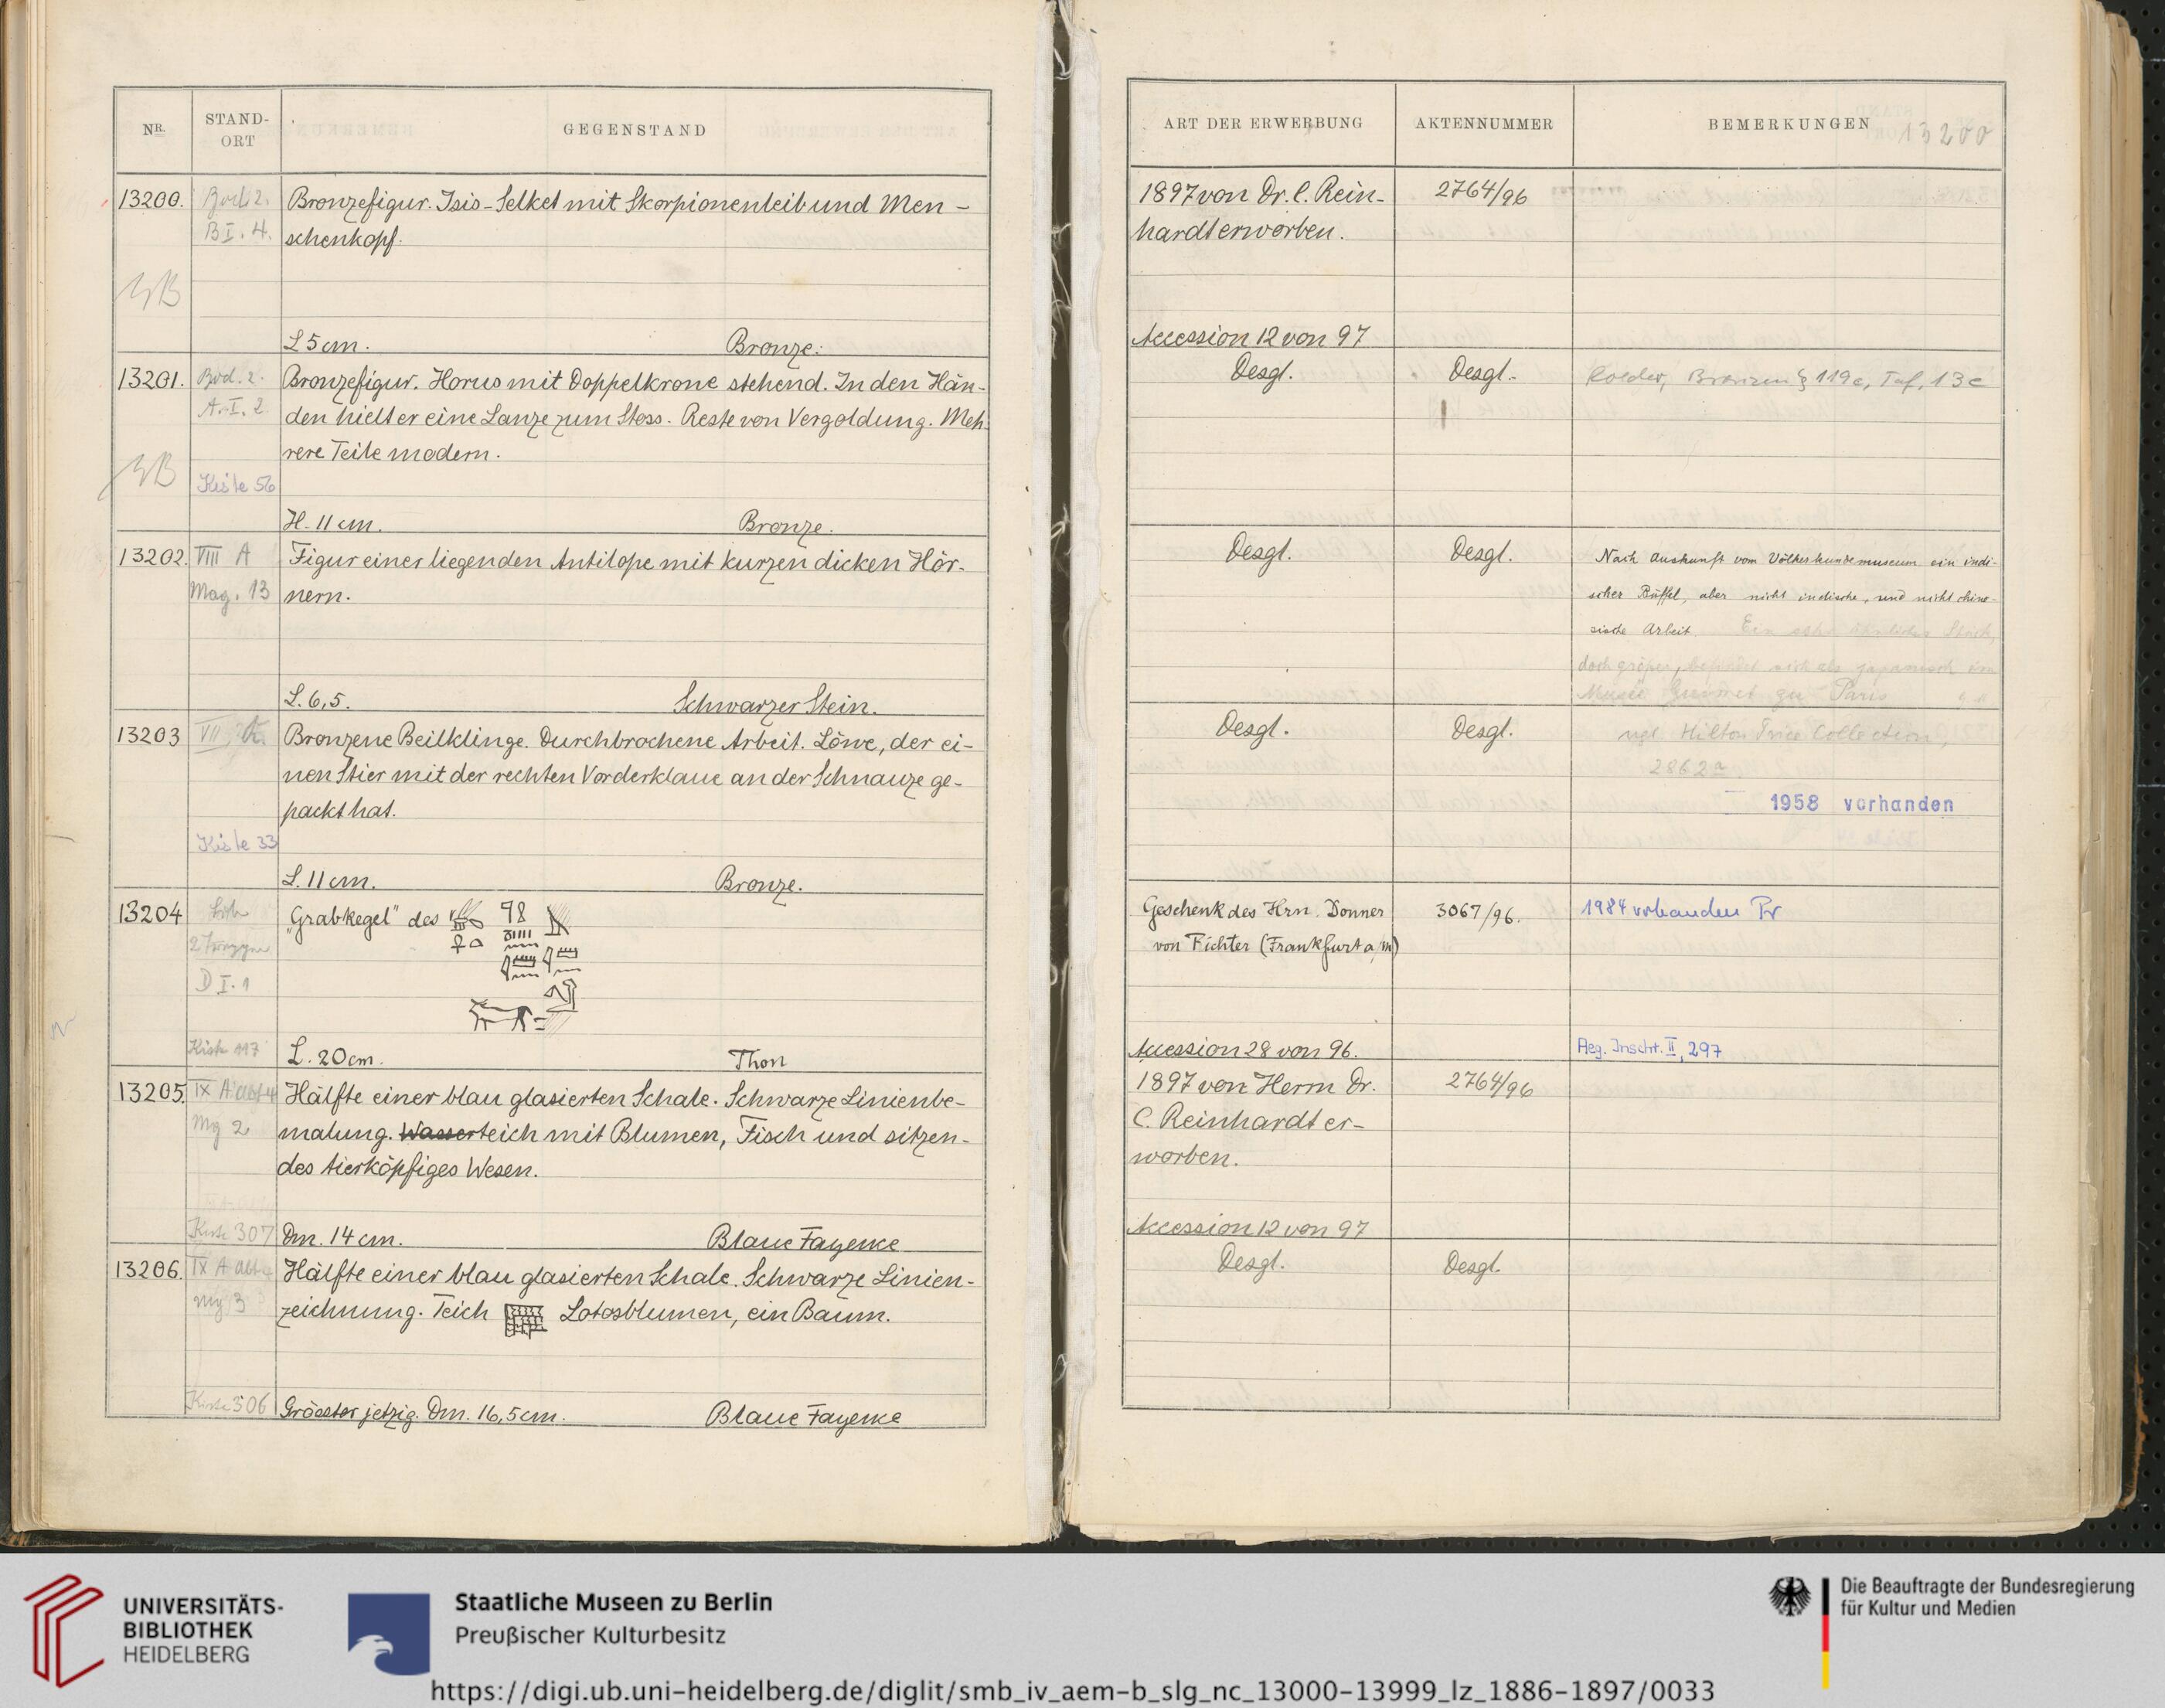 NR.
STAND-
ORT
GEGENSTAND
13200.
Bod. 2.
B I. 4.
Bronzefigur. Isis-Selket mit Skorpionenleib und Men-
schenkopf.
L 5 cm. Bronze.
13201.
Bod. 2.
A. I. 2
Bronzefigur. Horus mit Doppelkrone stehend. In den Hän-
den hielt er eine Lanze zum Stoss. Reste von Vergoldung. Meh-
rere Teile modern.
Kiste 56
H. 11 cm. Bronze.
13202.
VIII A
Mag. 13
Figur einer liegenden Antilope mit kurzen dicken Hör-
nern.
L. 6,5. Schwarzer Stein.
13203
VII
Bronzene Beilklinge. Durchbrochene Arbeit. Löwe, der ei-
nen Stier mit der rechten Vorderklaue an der Schnauze ge-
packt hat.
Kiste 33
L. 11 cm. Bronze.
13204
D I. 1
Kiste 117
"Grabkegel" des
L. 20 cm. Thon
13205.
IX A
Mg 2
Hälfte einer blau glasierten Schale. Schwarze Linienbe-
malung. Wasserteich mit Blumen, Fisch und sitzen-
des tierköpfiges Wesen.
Kiste 307
Dm. 14 cm. Blaue Fayence
13206.
IX A
Mg 3
Hälfte einer blau glasierten Schale. Schwarze Linien-
zeichnung. Teich Lotosblumen, ein Baum.
Kiste 306
Grösster jetzig. Dm. 16,5 cm. Blaue Fayence
ART DER ERWERBUNG
AKTENNUMMER
BEMERKUNGEN
13200
1897 von Dr. C. Rein- 2764/96
hardt erworben.
Accession 12 von 97
Desgl. Desgl. Roeder, Bronzen § 119c, Taf. 13c
Desgl. Desgl. Nach Auskunft vom Völkerkundemuseum ein indi-
scher Büffel, aber nicht indische, und nicht chine-
sische Arbeit. Ein sehr ähnliches Stück,
doch größer, befindet sich als japanisch im
Musée Guimet zu Paris
Desgl. Desgl. vgl. Hilton Price Collection,
2862a
1958 vorhanden
Geschenk des Hrn. Donner 3067/96. 1984 vorhanden Pr
von Richter (Frankfurt a/M)
Accession 28 von 96. Aeg. Inschr. II, 297
1897 von Herrn Dr. 2764/96
C. Reinhardt er-
worben.
Accession 12 von 97
Desgl. Desgl.
UNIVERSITÄTS-
BIBLIOTHEK
HEIDELBERG
Staatliche Museen zu Berlin
Preußischer Kulturbesitz
Die Beauftragte der Bundesregierung
für Kultur und Medien
https://digi.ub.uni-heidelberg.de/diglit/smb_iv_aem-b_slg_nc_13000-13999_lz_1886-1897/0033